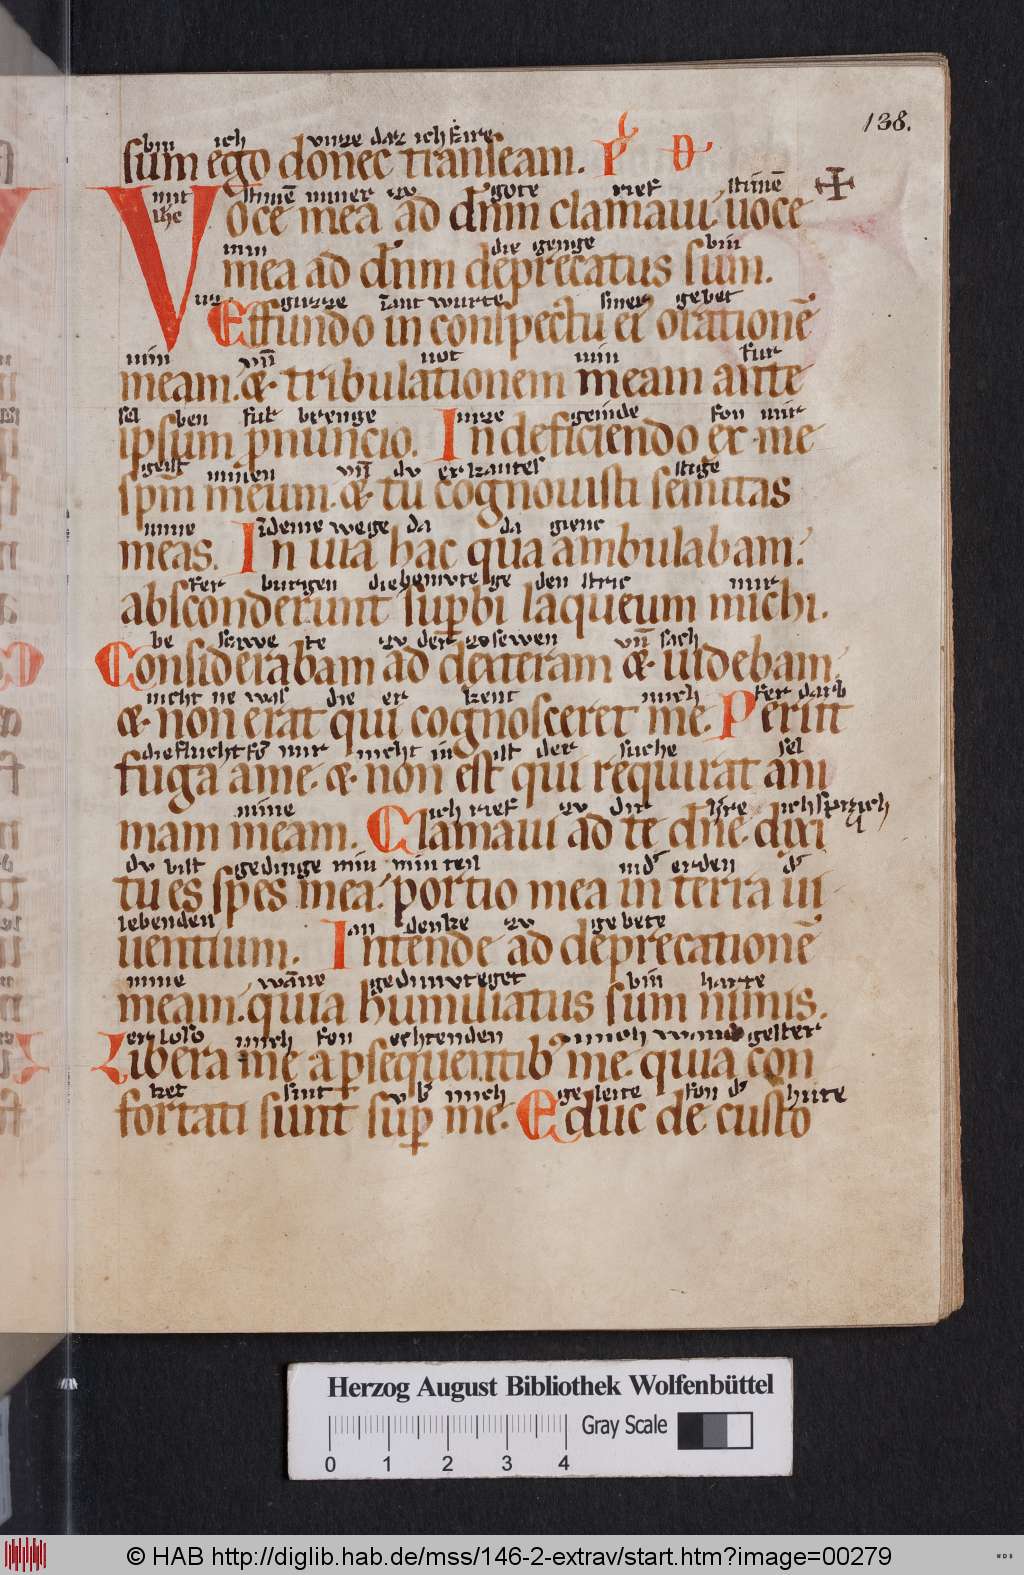 138.
bin ich vnze daz ich fure
sum ego donec transeam. P D
mit stinnē miner zv gote rief stinnē
Voce mea ad dn̄m clamaui. uoce
min die genge bin
mea ad dn̄m deprecatus sum.
siner gebet
Effundo in conspectu ei orationē
min vn̄ not min fur
meam. & tribulationem meam ante
sel ben fur brenge Inze geinde fon mir
ipsum pnuncio. In deficiendo ex me
geist minen vn̄ dv erkantes stige
spm̄ meum. & tu cognouisti semitas
mine īdeme wege da da gienc
meas. In uia hac qua ambulabam.
fer burgen den stric mir
absconderunt supbi laqueum michi.
be scowe te zv der zosewen vn̄ sach
Considerabam ad dexteram & uidebam.
nicht ne was die er kent mich fer darb
& non erat qui cognosceret me. Periit
die flucht fō mir nicht in ist der suche sel
fuga a me. & non est qui requirat ani
mine ich rief zv dir h're ich sprach
mam meam. Clamaui ad te dn̄e. dixi
dv bist gedinge min min teil in d' erden d'
tu es spes mea. portio mea in terra ui
lebenden an denke zv gebete
uentium. Intende ad deprecationē
mine wāne gedimvteget bin harte
meam. quia humiliatus sum nimis.
erlose mich fon echtenden
Libera me a psequentib' me. quia con
ket sint vb' mich geleite fon d' hute
fortati sunt sup me. Educ de custo
Herzog August Bibliothek Wolfenbüttel
Gray Scale
0 1 2 3 4
© HAB http://diglib.hab.de/mss/146-2-extrav/start.htm?image=00279